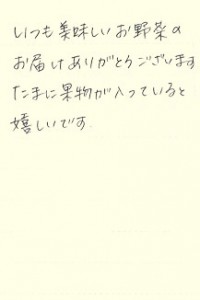 いつも美味しいお野菜の
お届けありがとうございます
たまに果物が入っていると
嬉しいです.